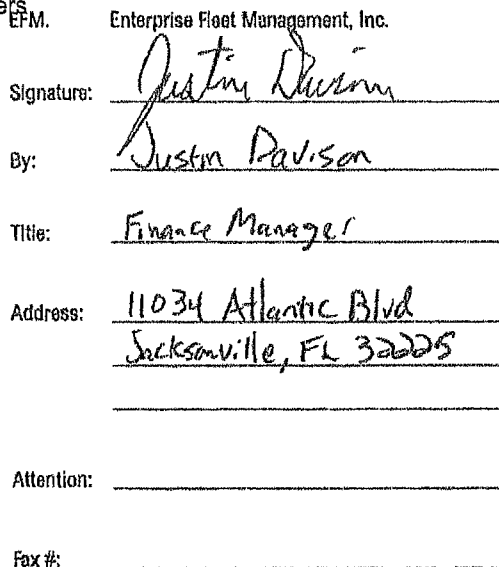 ers
EFM. Enterprise Fleet Management, Inc.
Signature: Justin Davison
By: Justin Davison
Title: Finance Manager
Address: 11034 Atlantic Blvd
Jacksonville, FL 32225
Attention:
Fax #: